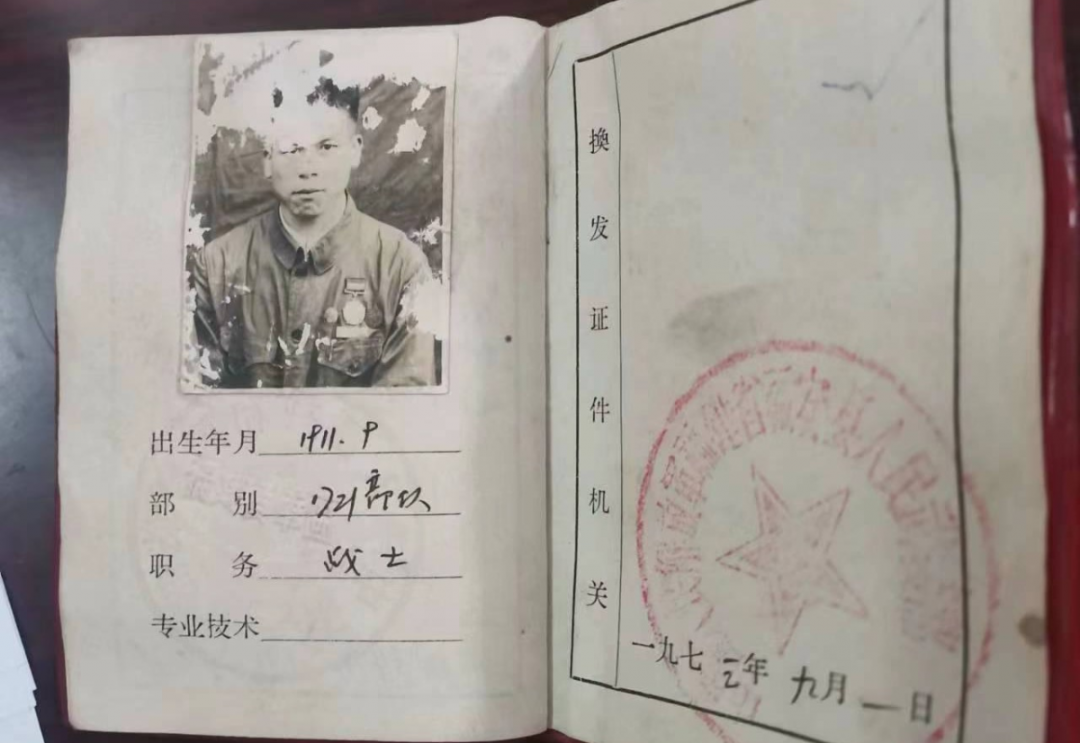 出生年月 1911.9
部别 1721部队
职务 战士
专业技术
换发证件机关
一九七三年九月一日